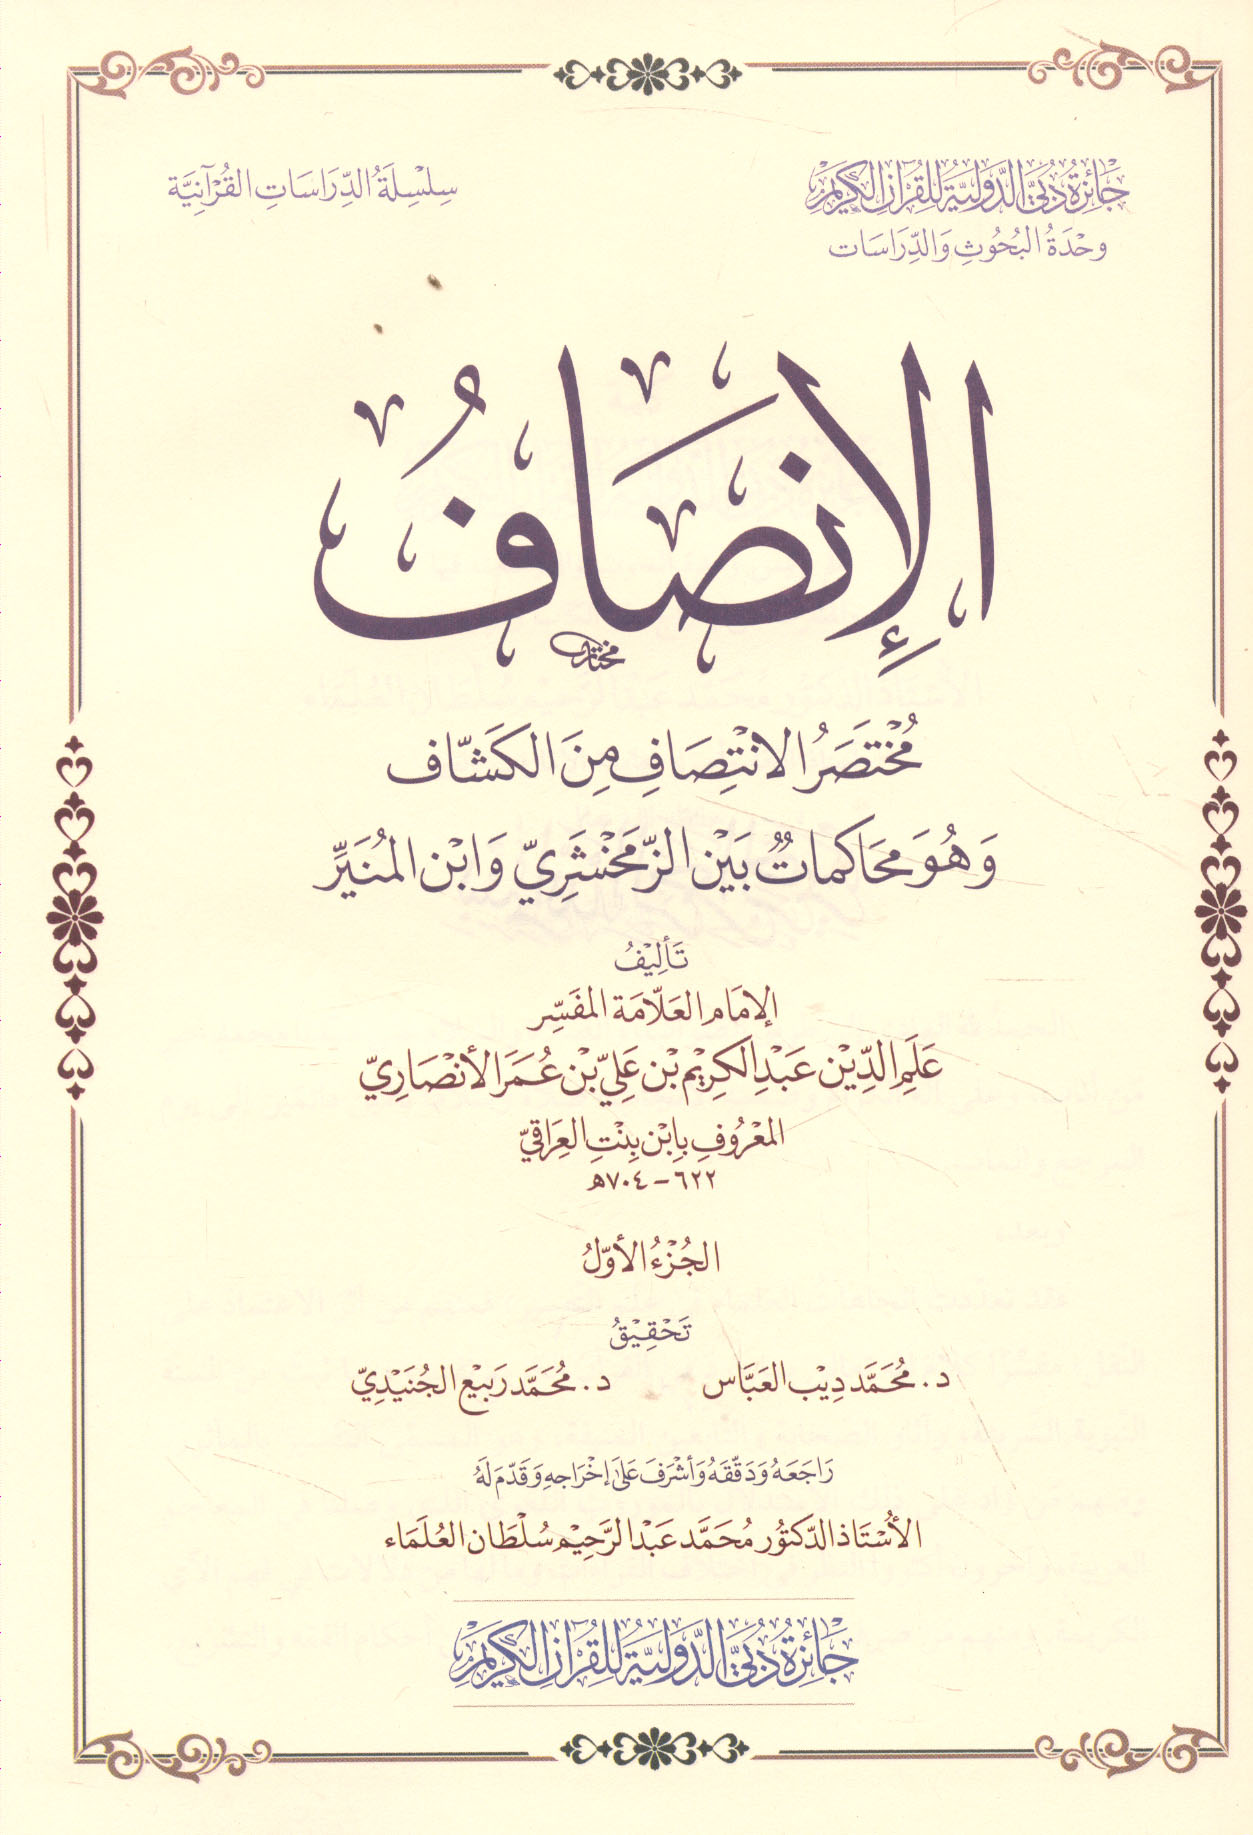 جَائِزَةُ دُبَيّ الدَّوْلِيَّةُ لِلْقُرْآنِ الْكَرِيمِ
وحْدَةُ البُحُوثِ وَالدِّرَاسَات
سِلْسِلَةُ الدِّرَاسَاتِ القُرْآنِيَّة
الإِنْصَافُ
مختار
مُخْتَصَرُ الانْتِصَافِ مِنَ الكَشّاف
وَهُوَ مُحَاكماتٌ بَيْن الزّمَخْشَرِيّ وَابْن المُنَيِّر
تَأليْفُ
الإمَام العَلّامَة المفَسِّر
عَلَم الدِّيْن عَبْد الكَرِيْم بْن عَلِيّ بْن عُمَر الأنْصَارِيّ
المعْرُوفِ بِابْن بِنْتِ العِرَاقيّ
٦٢٢ - ٧٠٤هـ
الجُزْءُ الأوّلُ
تَحْقِيْقُ
د. مُحَمَّد دِيْب العَبَّاس
د. مُحَمَّد رَبِيْع الجُنَيْدِيّ
رَاجَعَهُ وَدَقّقَهُ وَأشْرَفَ عَلى إخْرَاجِهِ وَقَدّمَ لَهُ
الأُسْتَاذ الدّكتوُر مُحَمَّد عَبْد الرَّحِيْم سُلْطَان العُلَمَاء
جَائِزَةُ دُبَيّ الدَّوْلِيَّةُ لِلْقُرْآنِ الْكَرِيمِ